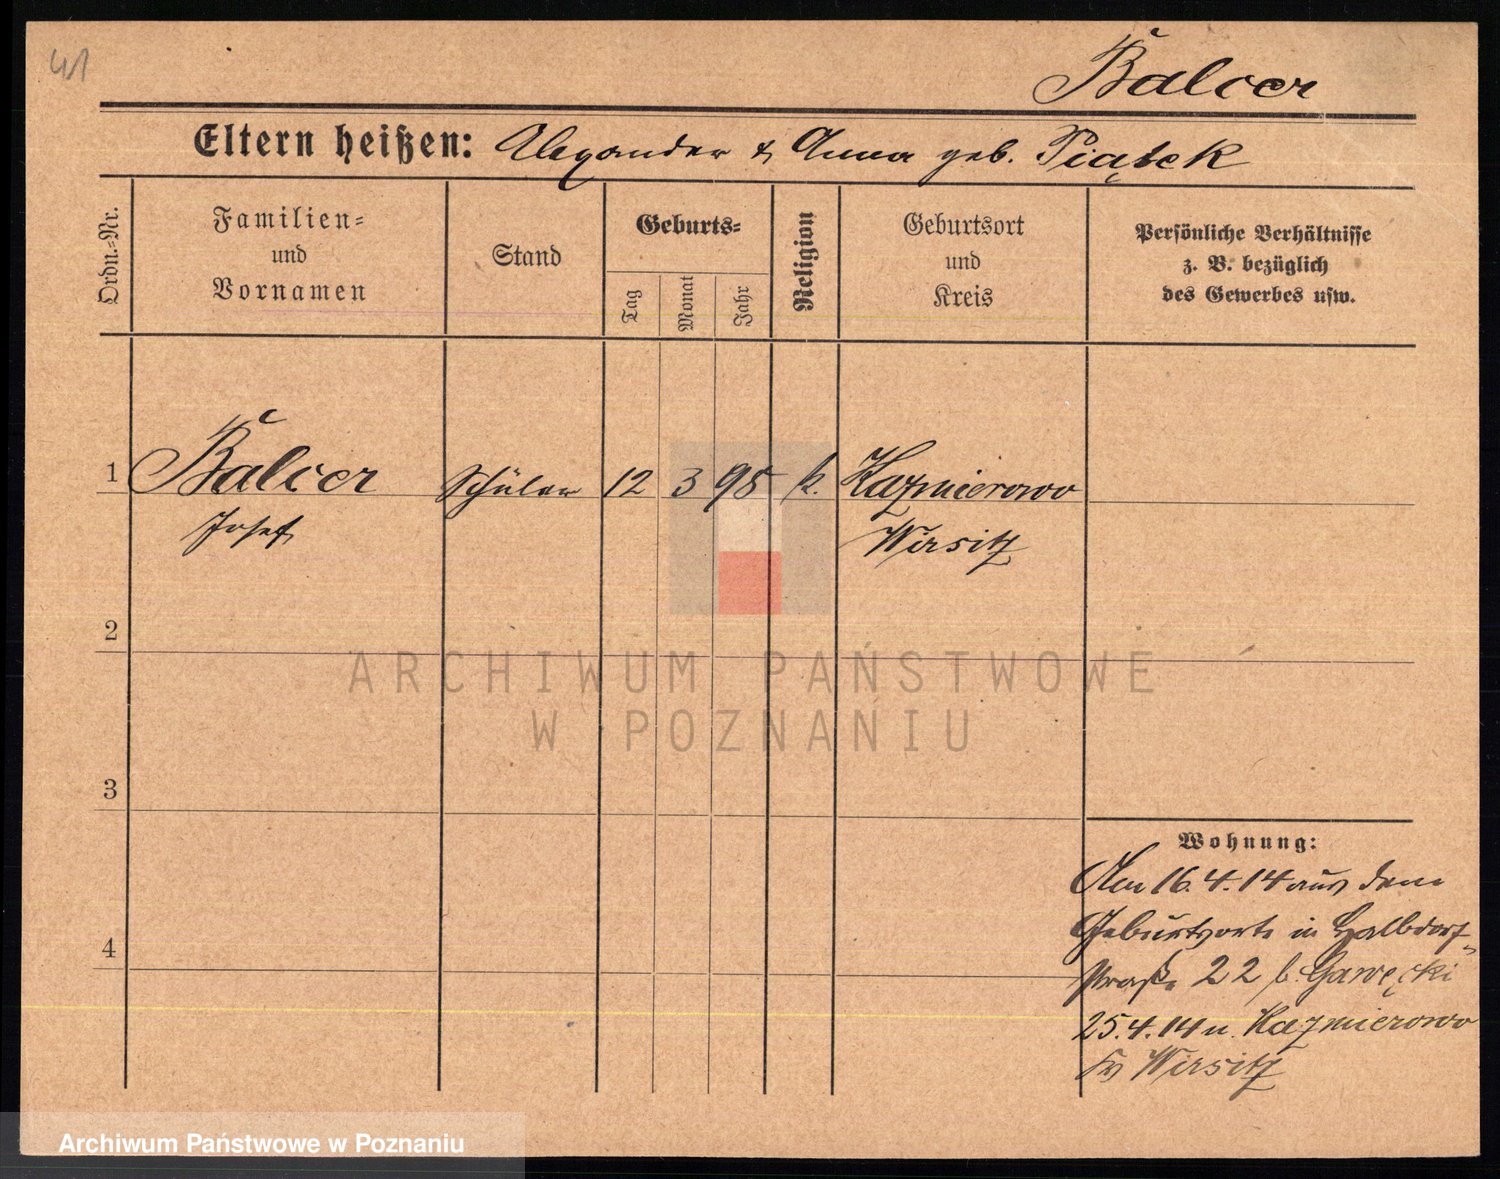 41
Balcer
Eltern heißen: Alexander & Anna geb. Piątek
Ordn.-Nr.
Familien-
und
Vornamen
Stand
Geburts-
Tag
Monat
Jahr
Religion
Geburtsort
und
Kreis
Persönliche Verhältnisse
z. B. bezüglich
des Gewerbes usw.
1 Balcer Schüler 12 3 98 k. Kazmierowo
Josef Wirsitz
2
3
4
ARCHIWUM PAŃSTWOWE
W POZNANIU
Wohnung:
Am 16.4.14 aus dem
Geburtsorte in Halbdorf-
straße 22 b. Gawęcki
25.4.14 n. Kazmierowo
Kr Wirsitz
Archiwum Państwowe w Poznaniu